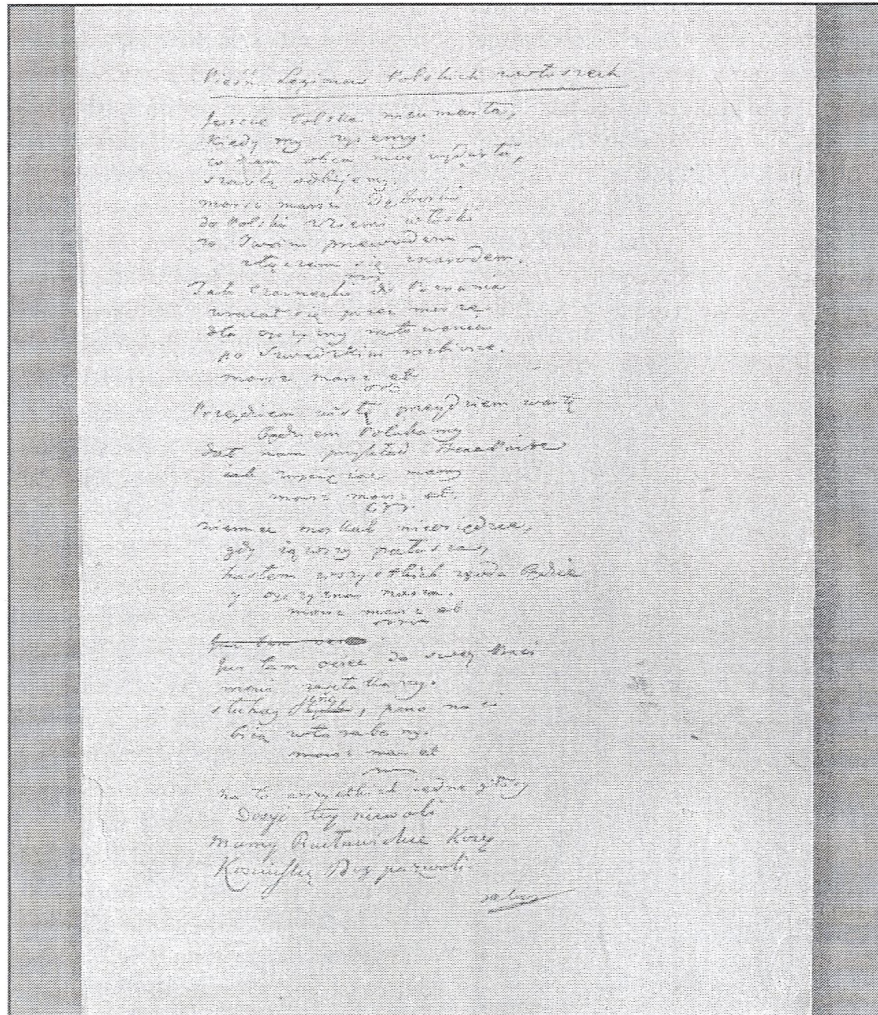 Pieśń Legionów Polskich we włoszech
Jeszcze Polska nieumarła,
kiedy my żyiemy.
co nam obca moc wydarła,
szablą odbijemy.
marsz marsz Dąbrowski
do Polski z ziemi włoski
za Twoim przewodem
złączem się znarodem.
Jak Czarnecki do Poznania
wracał się przez morze
dla oyczyzny ratowania
po Szwedzkim rozbiorze.
marsz marsz et
Przeydziem wisłę przeydziem wartę
będziem Polakamy
dał nam przykład Bonaparte
iak zwyciężać mamy
marsz marsz et.
niemiec moskal nieosiędzie,
gdy iąwszy pałasza,
hasłem wszystkich zgoda będzie
y oyczyzna nasza.
marsz marsz et
Już tam
Już tam ociec do swey Basi
mowi zapłakany.
słuchay ieno, pono nasi
biią w tarabany.
marsz mar et
na to wszystkich iedne głosy
Dosyć tey niewoli
mamy Racławickie Kosy
Kosciuszkę Bog pozwoli.